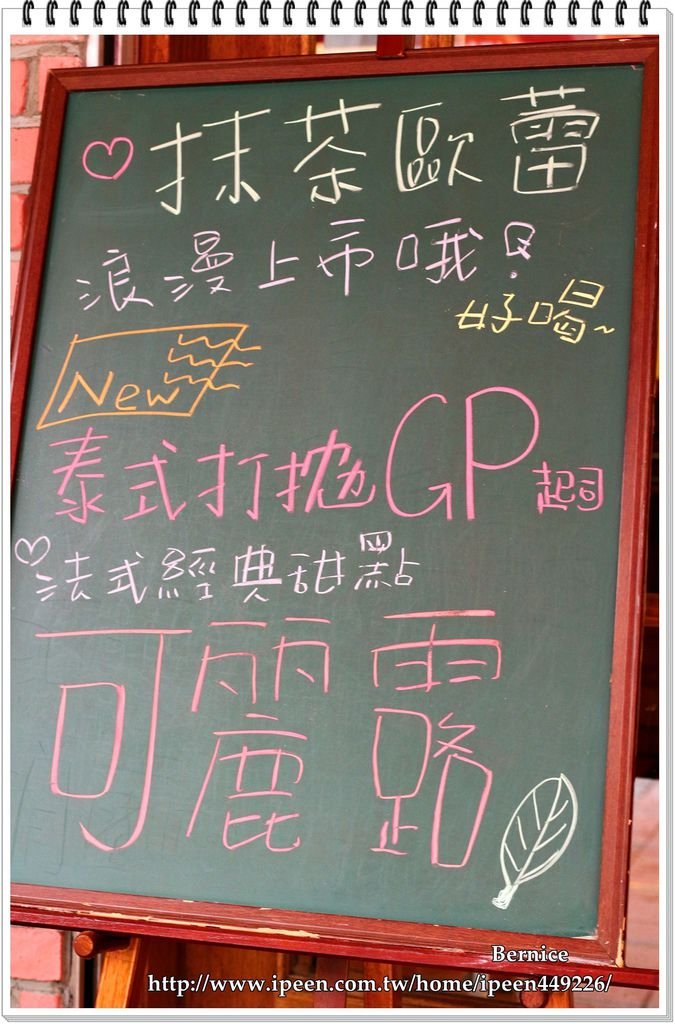 ♡ 抹茶歐蕾
浪漫上市哦!
好喝~
New
泰式打拋GP起司
♡法式經典甜點
可麗露
Bernice
http://www.ipeen.com.tw/home/ipeen449226/